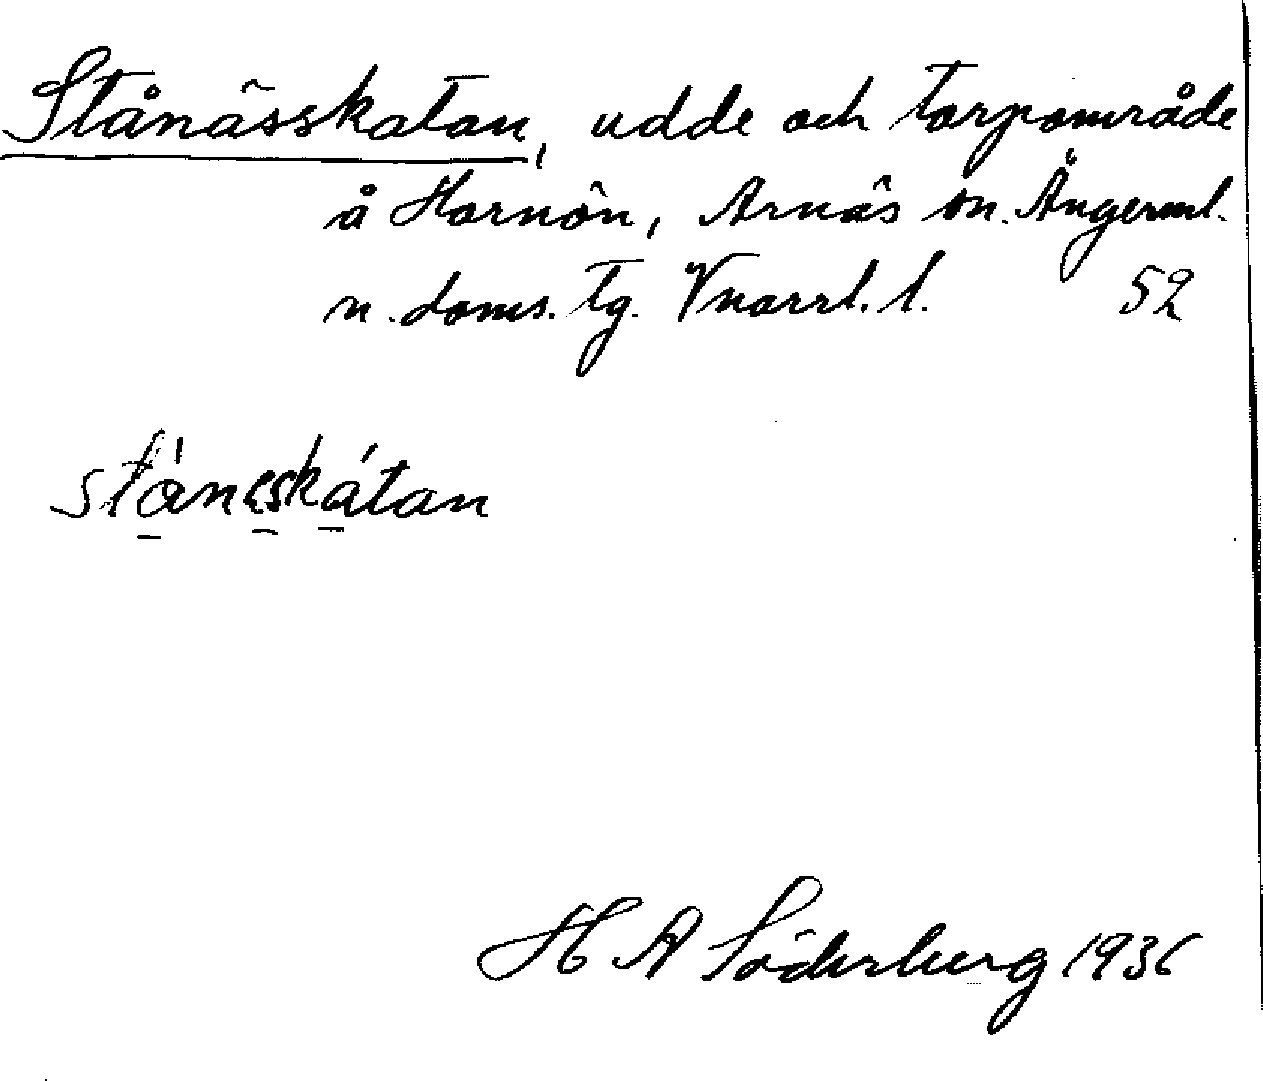 Stånässkatan, udde och torpområde
å Hornön, Arnäs sn. Ångerml.
n. doms. tg. Vnorrl. l. 52
ståneskátan
H A Söderberg 1936